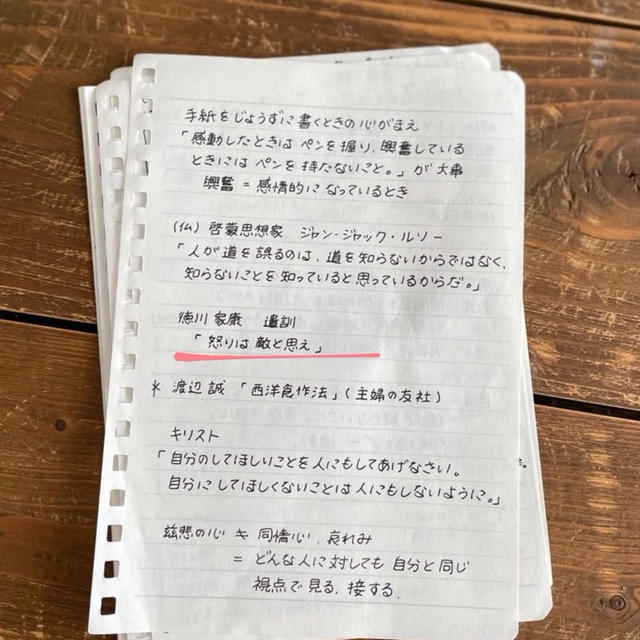 手紙をじょうずに書くときの心がまえ
「感動したときはペンを握り、興奮している
ときにはペンを持たないこと。」が大事
興奮 = 感情的になっているとき
(仏) 啓蒙思想家 ジャン・ジャック・ルソー
「人が道を誤るのは、道を知らないからではなく、
知らないことを知っていると思っているからだ。」
徳川家康 遺訓
「怒りは敵と思え」
* 渡辺誠 「西洋食作法」(主婦の友社)
キリスト
「自分のしてほしいことを人にもしてあげなさい。
自分にしてほしくないことは人にもしないように。」
慈悲の心 ≠ 同情心、哀れみ
= どんな人に対しても自分と同じ
視点で見る、接する。